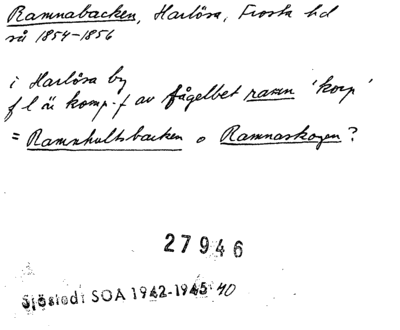 Ramnabacken, Harlösa, Frosta hd
så 1854-1856
i Harlösa by
f l är komp.f av fågelbet ramn 'korp'
= Ramnhultsbacken o Ramnaskogen?
27946
Sjöstedt SOA 1942-1945 40